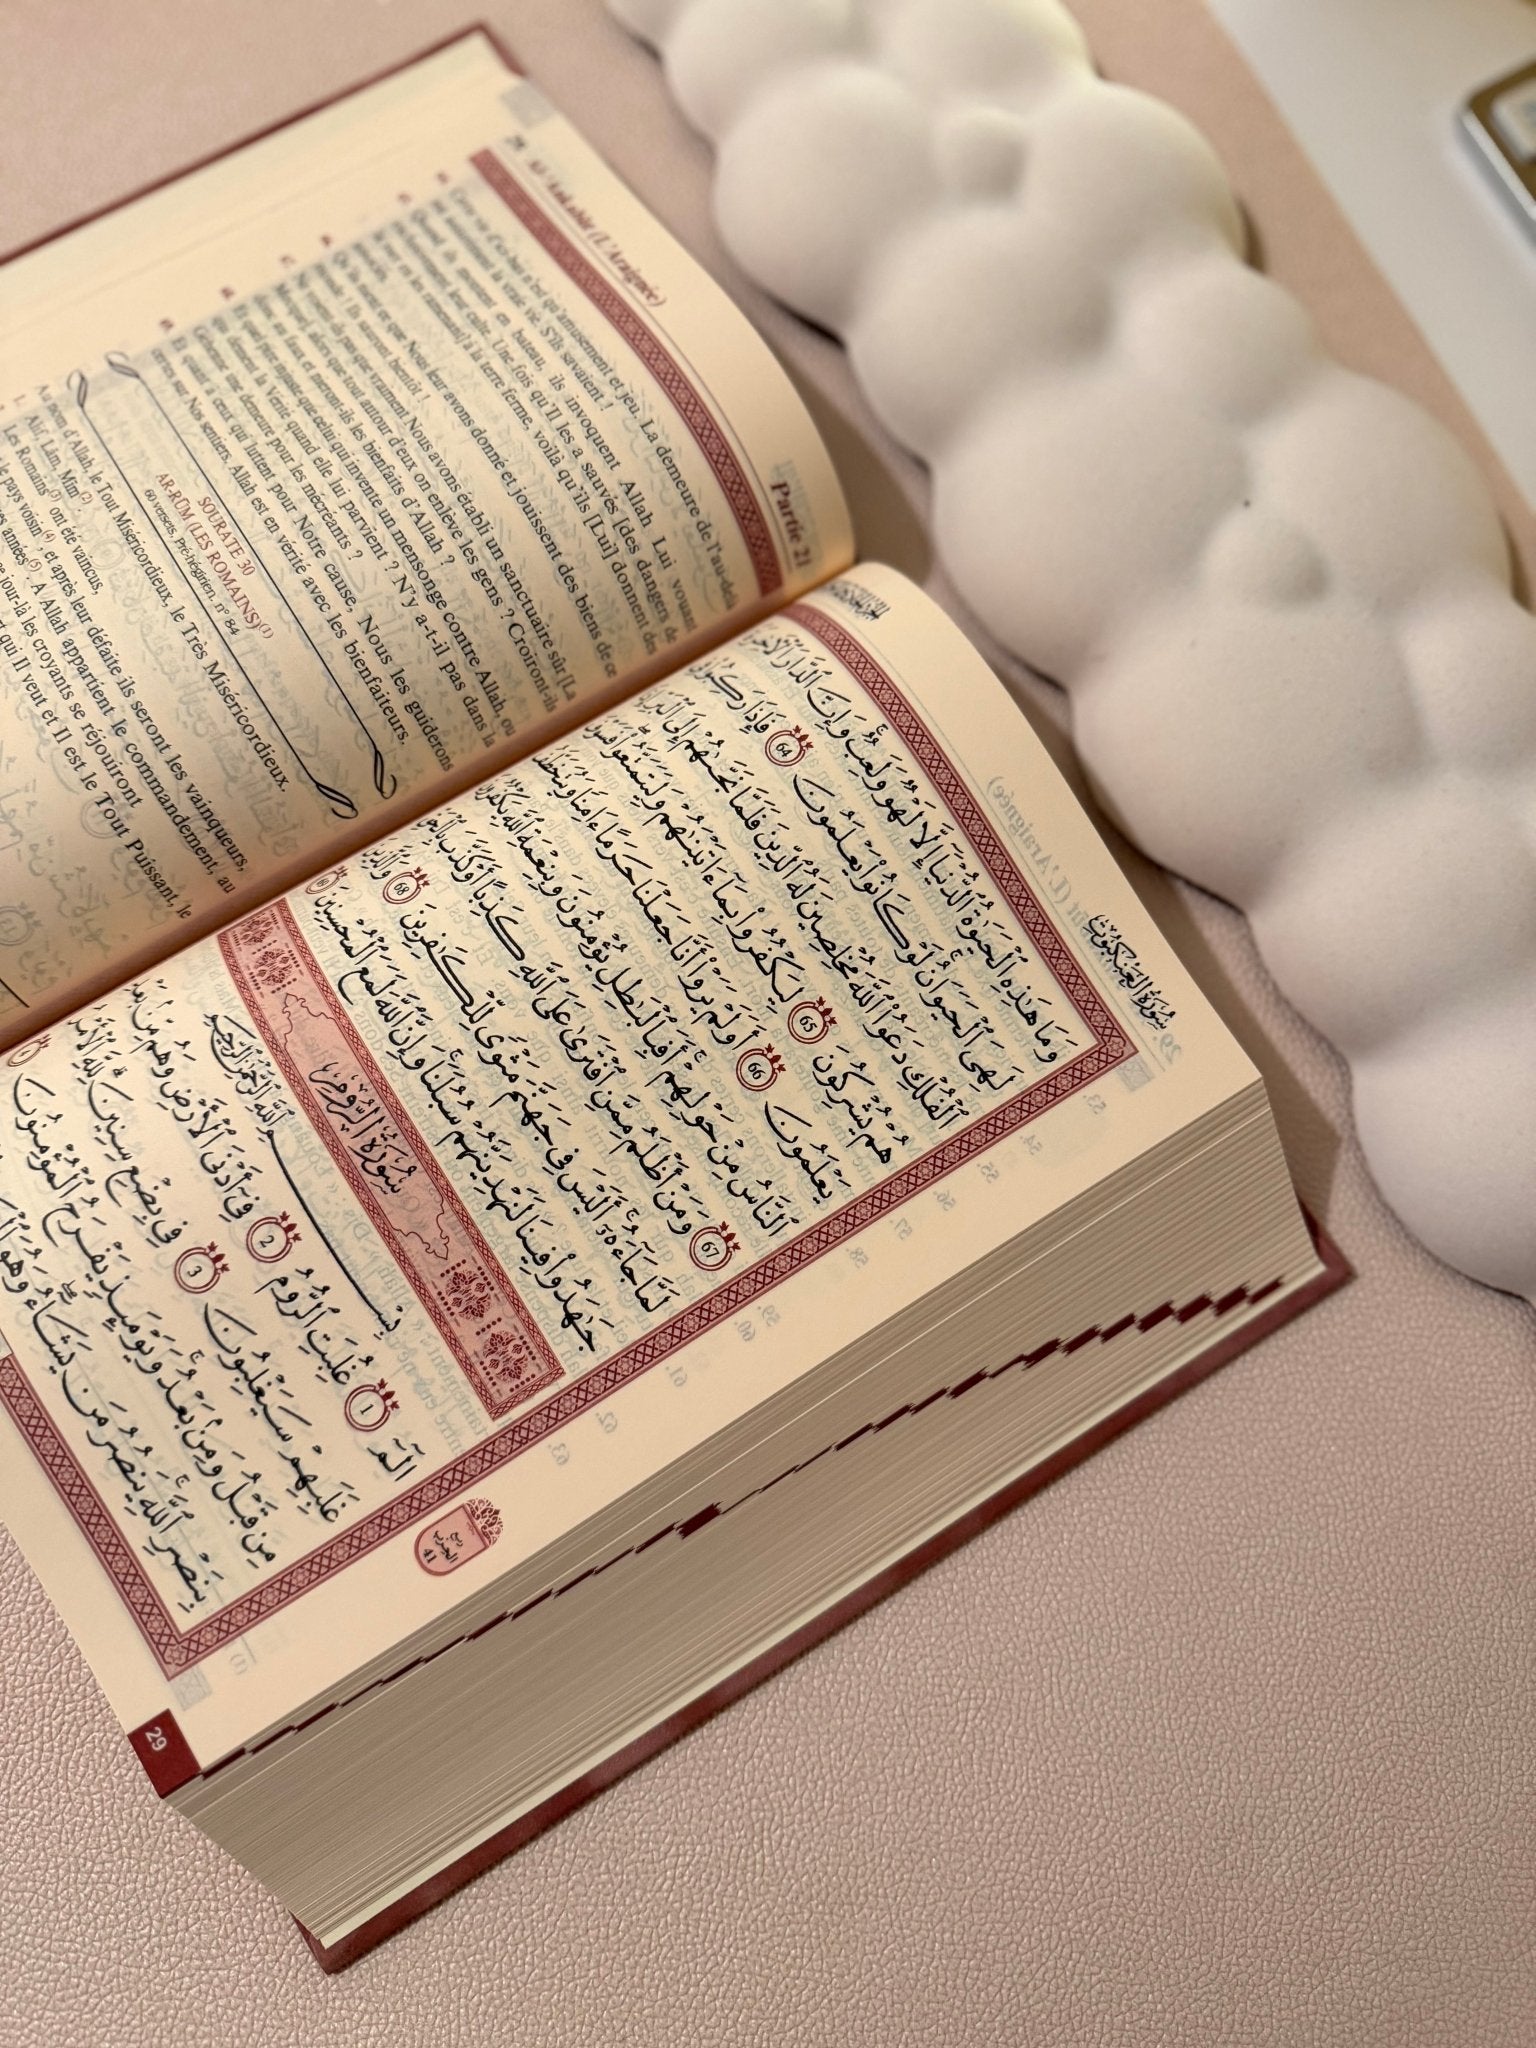 29. Al-'Ankabût (L'Araignée)
Partie 21
Cette vie d'ici-bas n'est qu'amusement et jeu. La demeure de l'au-delà
est assurément la vraie vie. S'ils savaient !
Quand ils montent en bateau, ils invoquent Allah Lui vouant
exclusivement leur culte. Une fois qu'Il les a sauvés [des dangers de
la mer en les ramenant] à la terre ferme, voilà qu'ils [Lui] donnent des
associés.
Qu'ils nient ce que Nous leur avons donné et jouissent des biens de ce
monde ! Ils sauront bientôt !
ne voient-ils pas que vraiment Nous avons établi un sanctuaire sûr [La
Mecque], alors que tout autour d'eux on enlève les gens ? Croiront-ils
donc au faux et nieront-ils les bienfaits d'Allah ?
Et quel pire injuste que celui qui invente un mensonge contre Allah, ou
qui dément la Vérité quand elle lui parvient ? N'y a-t-il pas dans la
Géhenne une demeure pour les mécréants ?
Et quant à ceux qui luttent pour Notre cause, Nous les guiderons
certes sur Nos sentiers. Allah est en vérité avec les bienfaiteurs.
SOURATE 30
AR-RÛM (LES ROMAINS)(1)
60 versets, Pré-hégirien, n° 84
Au nom d'Allah, le Tout Miséricordieux, le Très Miséricordieux.
1. Alif, Lâm, Mîm(2).
Les Romains(3) ont été vaincus,
le pays voisin(4), et après leur défaite ils seront les vainqueurs,
années(5). A Allah appartient le commandement, au
jour-là les croyants se réjouiront
qui Il veut et Il est le Tout Puissant, le
سُورَةُ العَنكَبُوتِ
وَمَا هَٰذِهِ ٱلْحَيَوٰةُ ٱلدُّنْيَآ إِلَّا لَهْوٌ وَلَعِبٌ ۚ وَإِنَّ ٱلدَّارَ ٱلْآخِرَةَ
لَهِىَ ٱلْحَيَوَانُ ۚ لَوْ كَانُوا۟ يَعْلَمُونَ 64 فَإِذَا رَكِبُوا۟ فِى
ٱلْفُلْكِ دَعَوُا۟ ٱللَّهَ مُخْلِصِينَ لَهُ ٱلدِّينَ فَلَمَّا نَجَّىٰهُمْ إِلَى ٱلْبَرِّ إِذَا
هُمْ يُشْرِكُونَ 65 لِيَكْفُرُوا۟ بِمَآ ءَاتَيْنَٰهُمْ وَلِيَتَمَتَّعُوا۟ ۖ فَسَوْفَ
يَعْلَمُونَ 66 أَوَلَمْ يَرَوْا۟ أَنَّا جَعَلْنَا حَرَمًا ءَامِنًا وَيُتَخَطَّفُ
ٱلنَّاسُ مِنْ حَوْلِهِمْ ۚ أَفَبِٱلْبَٰطِلِ يُؤْمِنُونَ وَبِنِعْمَةِ ٱللَّهِ يَكْفُرُونَ
67 وَمَنْ أَظْلَمُ مِمَّنِ ٱفْتَرَىٰ عَلَى ٱللَّهِ كَذِبًا أَوْ كَذَّبَ بِٱلْحَقِّ
لَمَّا جَآءَهُۥٓ ۚ أَلَيْسَ فِى جَهَنَّمَ مَثْوًى لِّلْكَٰفِرِينَ 68 وَٱلَّذِينَ
جَٰهَدُوا۟ فِينَا لَنَهْدِيَنَّهُمْ سُبُلَنَا ۚ وَإِنَّ ٱللَّهَ لَمَعَ ٱلْمُحْسِنِينَ 69
سُورَةُ الرُّومِ
بِسْمِ ٱللَّهِ ٱلرَّحْمَٰنِ ٱلرَّحِيمِ
الٓمٓ 1 غُلِبَتِ ٱلرُّومُ 2 فِىٓ أَدْنَى ٱلْأَرْضِ وَهُم مِّنۢ بَعْدِ
غَلَبِهِمْ سَيَغْلِبُونَ 3 فِى بِضْعِ سِنِينَ ۗ لِلَّهِ ٱلْأَمْرُ
مِن قَبْلُ وَمِنۢ بَعْدُ ۚ وَيَوْمَئِذٍ يَفْرَحُ ٱلْمُؤْمِنُونَ
بِنَصْرِ ٱللَّهِ ۚ يَنصُرُ مَن يَشَآءُ ۖ وَهُوَ
ربع
الحزب
41
29